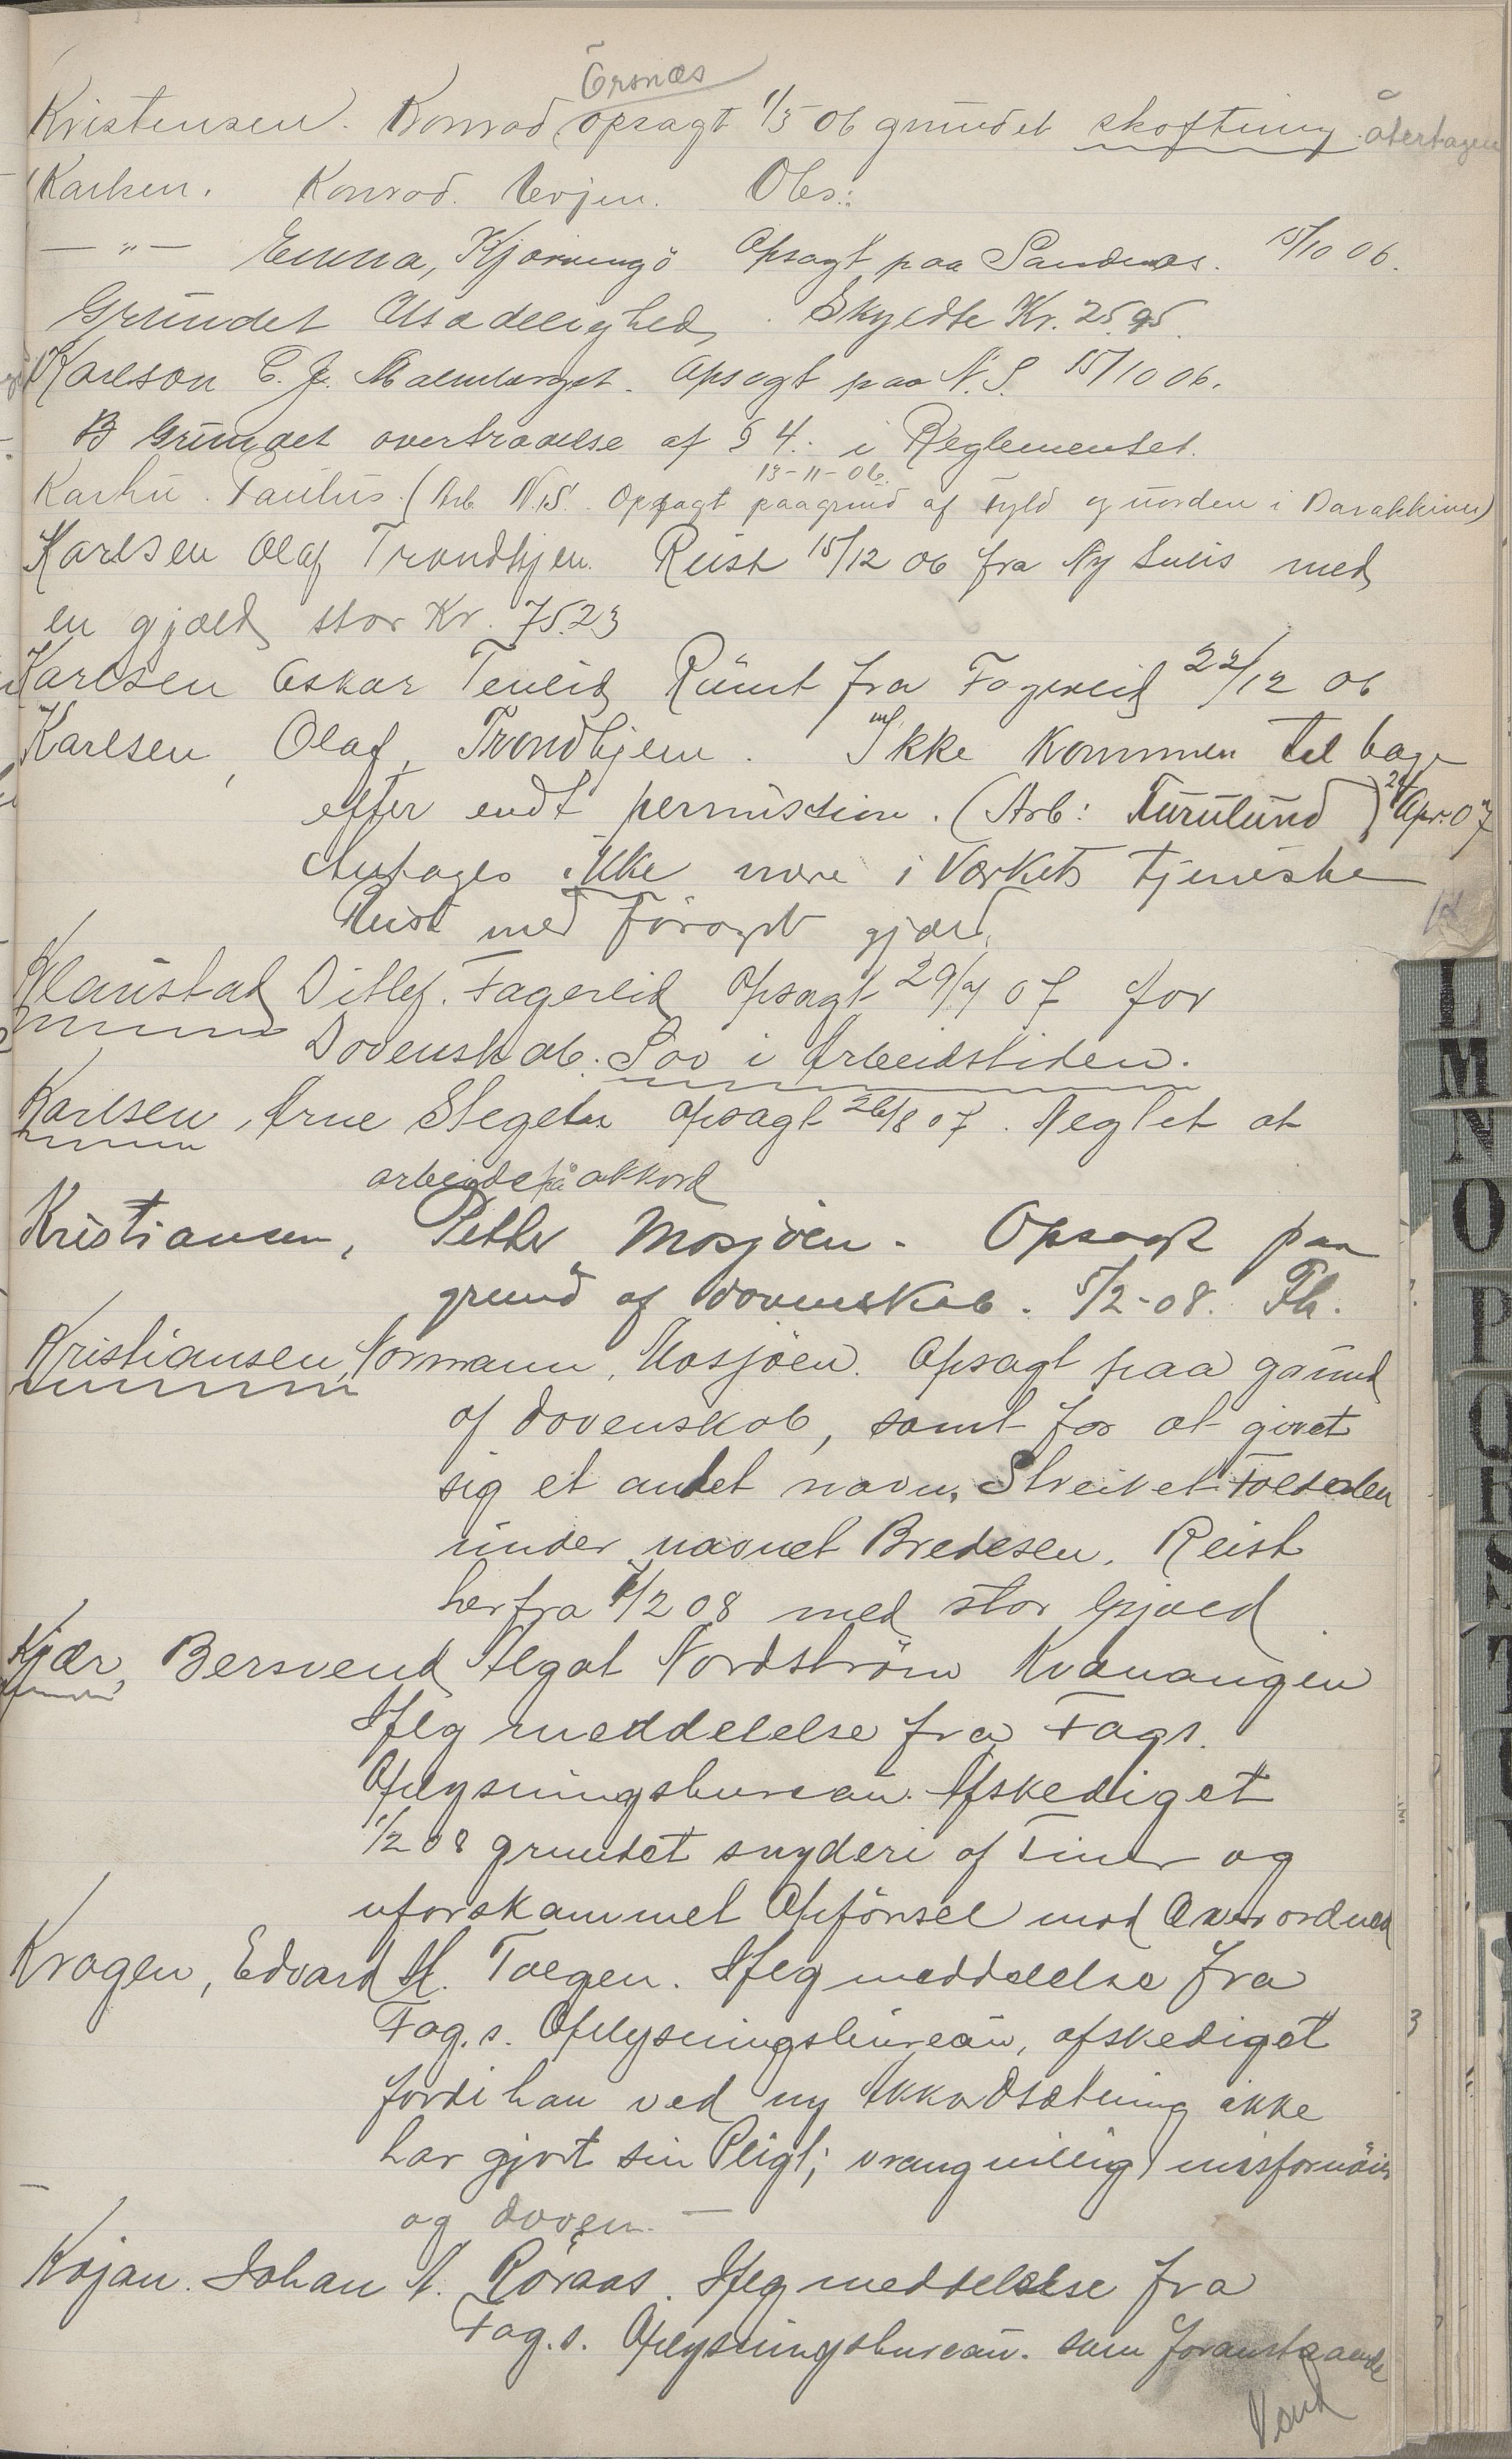 Örsnæs
Kristensen. Konrad opsagt 1/5 06 grundet skoftning. återtagen
Karlsen. Konrad. Obs:
— " — Emma, Opsagt paa Sandnæs. 15/10 06.
Grundet Usædelighed. Skyldte Kr. 25.95.
Karlson C. J. Malmberget. Opsagt paa N.S. 15/10 06.
B Grundet overtrædelse af § 4. i Reglementet.
13-11-06.
Karhu. Paulus. (Arb. N.S. Opsagt paagrund af Fyld og uorden i Barakkiven)
Karlsen Olaf Trondhjem. Reist 15/12 06 fra Ny Sulis med
en gjæld stor Kr. 75.23
Karlsen Oskar Teneid Rümt fra Fagereid 22/12 06
Karlsen, Olaf, Trondhjem. Ikke kommen tilbage
efter endt permission. (Arb: Furulund) 24/Apr. 07
Antages ikke mere i Værkets tjeneste
Reist med Forøgt gjæld.
Klaustad Ditlef. Fagereid Opsagt 29/4 07 for
Dovenskab. Sov i Arbeidstiden.
Karlsen, Arne Stegeta opsagt 26/8 07. Neglet at
arbeide på akkord
Kristiansen, Petter Mosjöen. Opsagt paa
grund af dovenskab. 5/2-08. Fh.
Kristiansen, Normann, Mosjöen. Opsagt paa grund
af dovenskab, samt for at givet
sig et andet navn,
under navnet Bredesen. Reist
herfra 8/2 08 med stor Gjæld.
Kjær, Bersvend Algot Nordström Kvænangen
Iflg meddelelse fra Fags.
Oplysningsbureau. Afskediget
1/2 08 grundet snyderi af Timer og
uforskammet Opförsel mod Overordned
Kragen, Edvard M. Tolgen. Iflg meddelelse fra
Fag.s. Oplysningsbureau, afskediget
fordi han ved ny Akkordsætning ikke
har gjort sin Pligt; vrangvillig, misfornöiet
og doven. —
Kojan. Johan A. Röraas. Iflg meddelelse fra
Fag.s. Oplysningsbureau. som foranstaaende
Vend
L
M
N
O
P
Q
R
S
T